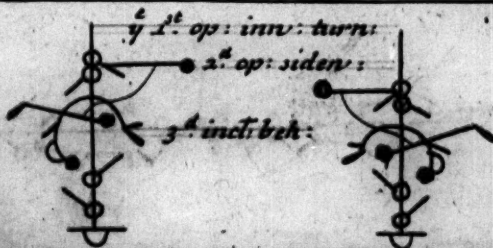 yᵉ 1ˢᵗ op: inn: turn:
2ᵈ op: siden:
3ᵈ incl: beh: